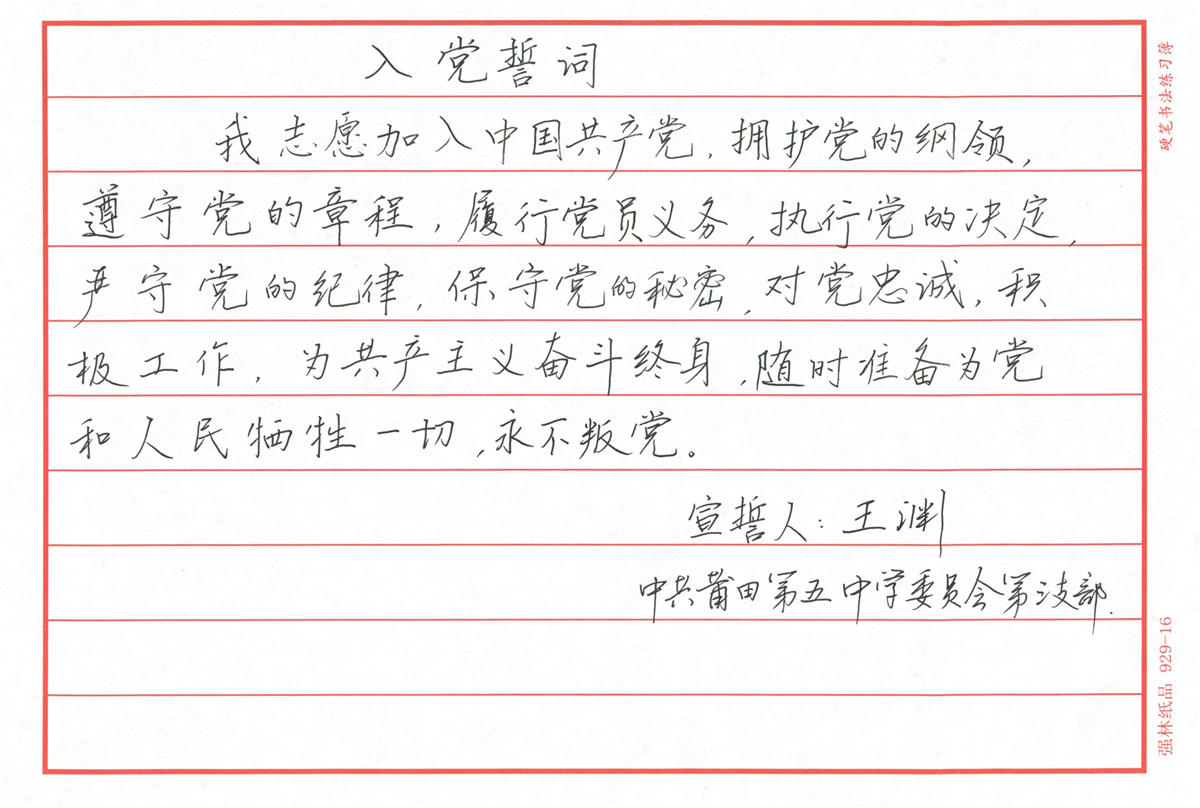 入党誓词
我志愿加入中国共产党,拥护党的纲领,
遵守党的章程,履行党员义务,执行党的决定,
严守党的纪律,保守党的秘密,对党忠诚,积
极工作,为共产主义奋斗终身,随时准备为党
和人民牺牲一切,永不叛党。
宣誓人:王渊
中共莆田第五中学委员会第三支部.
硬笔书法练习簿
强林纸品 929-16